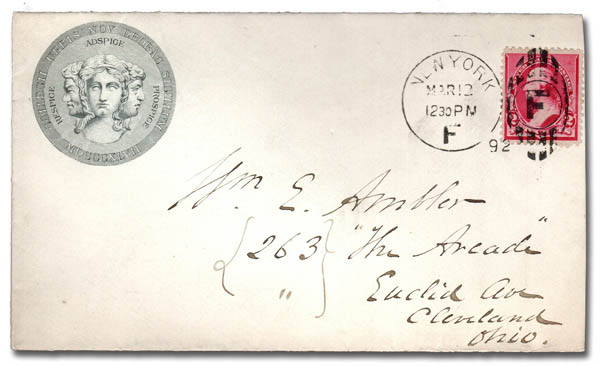 ADSPICE
RESPICE
PROSPICE
MDCCCXLVII
NEW YORK
MAR 12
12 30 PM
F
92
F
Wm. E. Ambler
263 "The Arcade"
" Euclid Ave
Cleveland
Ohio.